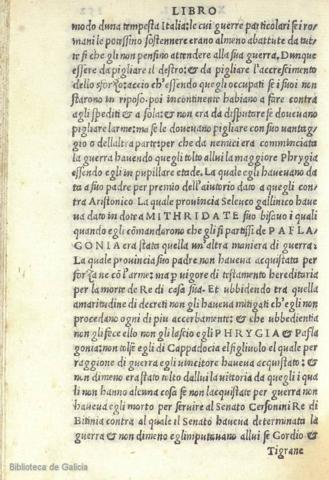 LIBRO
modo duna tempesta Italia: le cui guerre particolari se i ro=
mani le potessino sostennere erano almeno abattute da tut=
te si che gli non pensino attendere alla sua guerra, Dunque
essere da pigliare il destro; & da pigliare l'accrescimento
dello sforzo: accio ch'essendo quegli occupati se i suoi non
starono in riposo. poi incontinente habiano a fare contra
agli spediti & a sola: & non era da disputare se dovevano
pigliare larme: ma se le dovevano pigliare con suo vantag=
gio o dellaltra parte: per che da nemici era comminciata
la guerra havendo quegli tolto allui la maggiore Phrygia
essendo egli in pupillare etade. La quale egli havevano da
ta a suo padre per premio dell'aiutorio dato a quegli con
tra Aristonico. La quale provincia Seleuco gallinico have
va dato in dote a MITHRIDATE suo bisavo i quali
quando egli cōmandarono che gli si partissi de PAFLA
GONIA era stata quella un'altra maniera di guerra:
La quale provincia suo padre non haveva acquistata per
forza ne cō l'arme: ma p vigore di testamento hereditaria
per la morte de Re di casa sua. Et ubbidendo tru quella
amaritudine di decreti non gli haveva mitigati ch'egli non
procedano ogni di piu accerbamente: & che ubbedientia
non gli fece ello non gli lascio egli PHRYGIA & Pafla
gonia: non tolse egli di Cappadocia el figliuolo el quale per
raggione di guerra egli vincitore haveva acquistato: &
non dimeno era stato tolto dallui la vittoria da quegli i qua
li non hanno alcuna cosa se non lacquistate per guerra non
haveva egli morto per servire al Senato Cersonini Re di
Bitinia contra al quale il Senato haveva determinata la
guerra & non dimeno egl imputavano allui se Gordio &
Tigrane
Biblioteca de Galicia